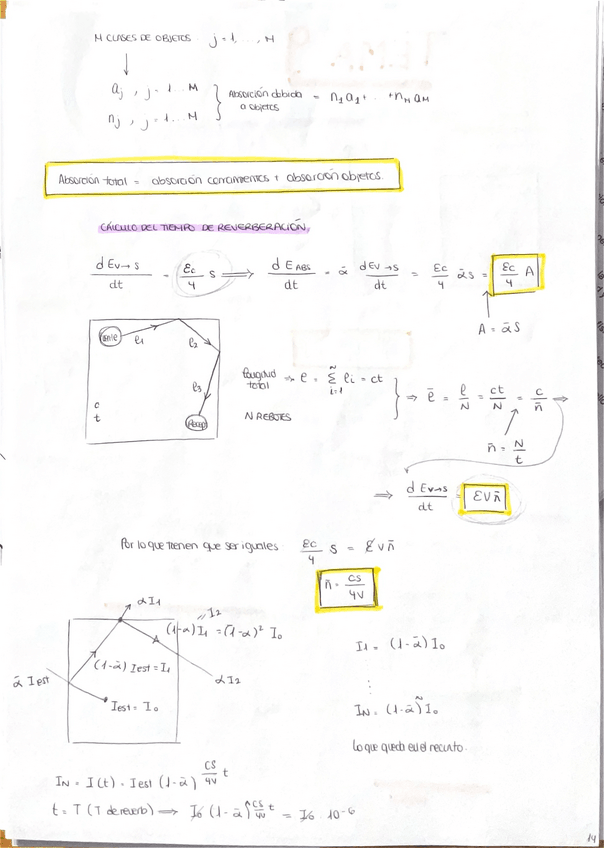 M CLASES DE OBJETOS j = 1, ..., M
aj , j = 1 ... M
nj , j = 1 ... M
Absorción debida a objetos = n1a1 + .. + nMaM
Absorción total = absorción cerramientos + absorción objetos
CÁLCULO DEL TIEMPO DE REVERBERACIÓN
dEv→s/dt = εc/4 S ⟹ dEABS/dt = ᾱ dEv→s/dt = εc/4 ᾱS = εc/4 A
A = ᾱS
l1
l2
l3
c
t
Recep
longitud total ⇒ l = Σ(i=1, N) li = ct
N REBOTES
⇒ l̄ = l/N = ct/N = c/n̄ ⇒
n̄ = N/t
⇒ dEv→s/dt = εVn̄
Por lo que tienen que ser iguales εc/4 S = εVn̄
n̄ = cS/4V
αI1
I2
(1-α)I1 = (1-α)² I0
(1-ᾱ) Iest = I1
ᾱ Iest
αI2
Iest = I0
I1 = (1-ᾱ) I0
⋮
IN = (1-ᾱ)^N I0
lo que queda en el recinto.
IN = I(t) = Iest (1-ᾱ)^(cS/4V t)
t = T (T de reverb) ⟹ I0 (1-ᾱ)^(cS/4V t) = I0 · 10^-6
14